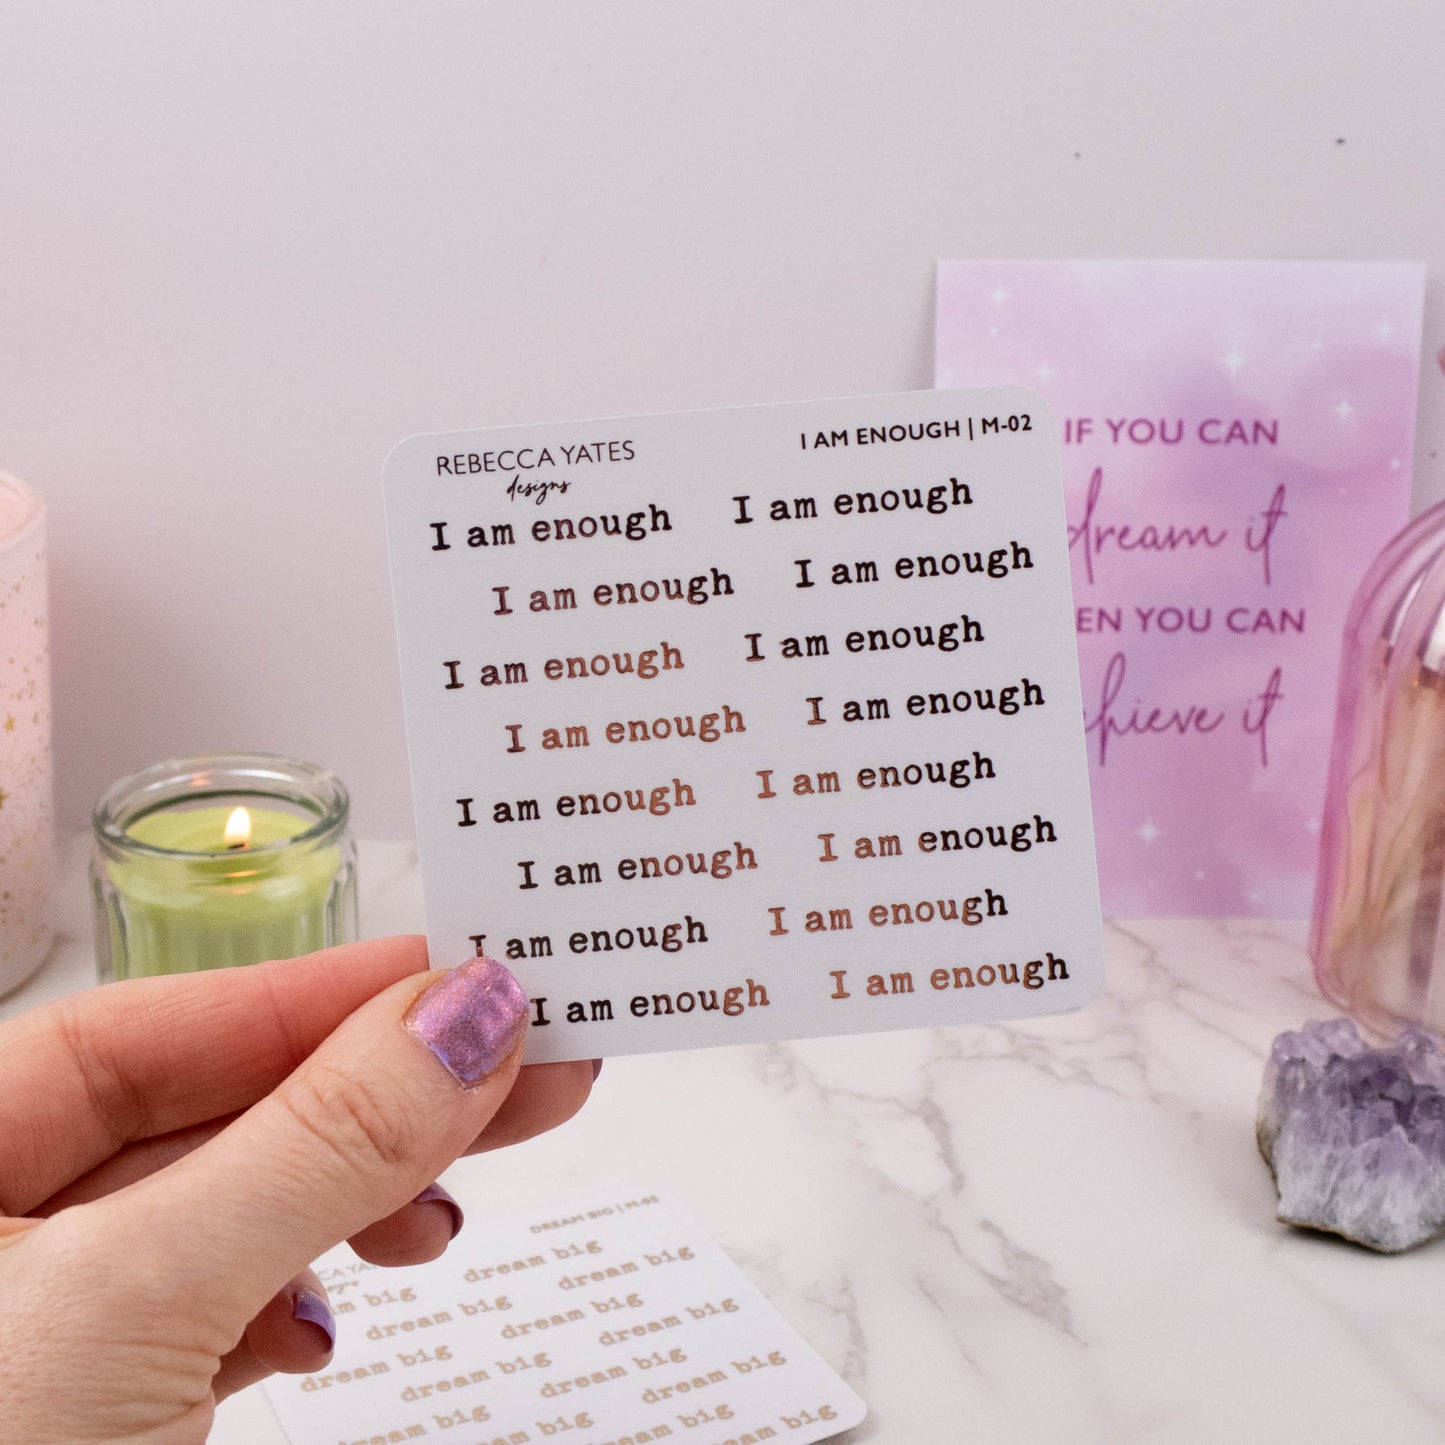 REBECCA YATES
designs
I AM ENOUGH | M-02
I am enough I am enough
I am enough I am enough
I am enough I am enough
I am enough I am enough
I am enough I am enough
I am enough I am enough
I am enough I am enough
I am enough I am enough
IF YOU CAN
dream it
EN YOU CAN
chieve it
DREAM BIG | M-05
CCA YAT
dream big
am big dream big
dream big dream big
dream big dream big
dream big dream big
dream big dream big
dream big dream big
dream big dream big